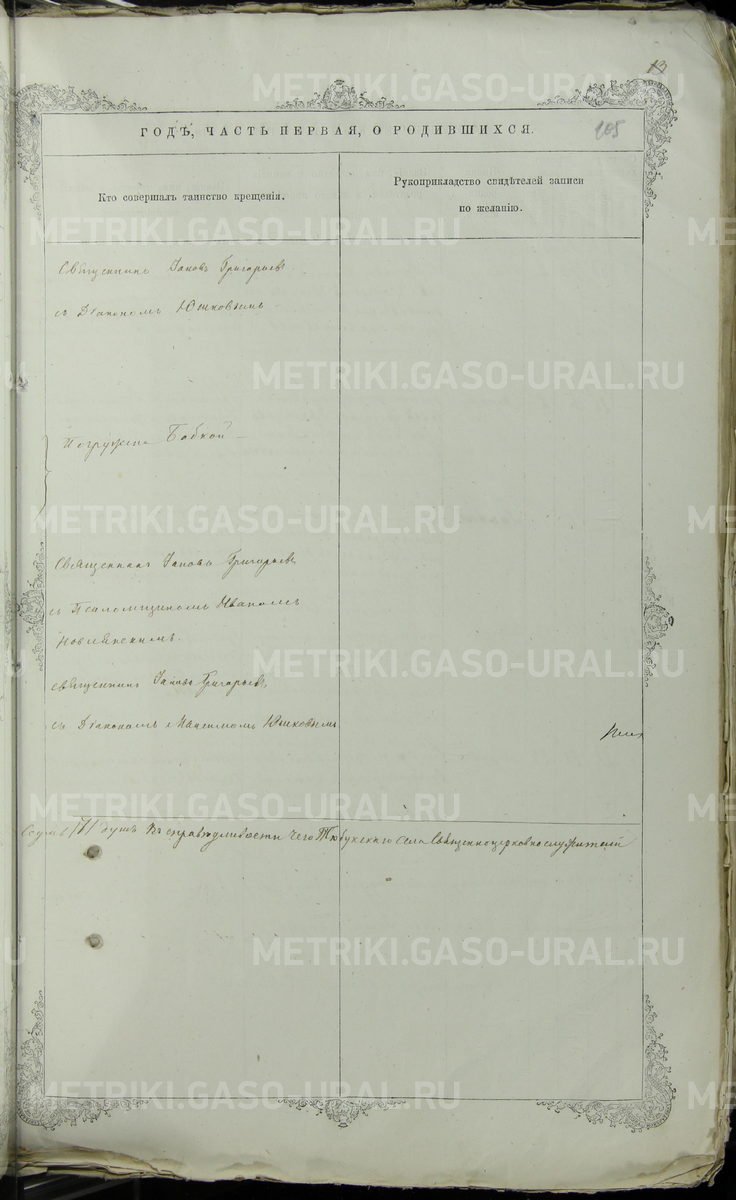 13
205
ГОДЪ, ЧАСТЬ ПЕРВАЯ, О РОДИВШИХСЯ.
Кто совершалъ таинство крещенія.
Рукоприкладство свидѣтелей записи
по желанію.
Священникъ Іаковъ Григорьевъ
съ Діакономъ Юшковымъ
Погружено Бабкой
Священникъ Іаковъ Григорьевъ
съ Псаломщикомъ Иваномъ
Священникъ Іаковъ Григорьевъ
съ Діакономъ Максимомъ Юшковымъ
душъ Въ справедливости чего Тюбукскаго села Священноцерковнослужители
METRIKI.GASO-URAL.RU